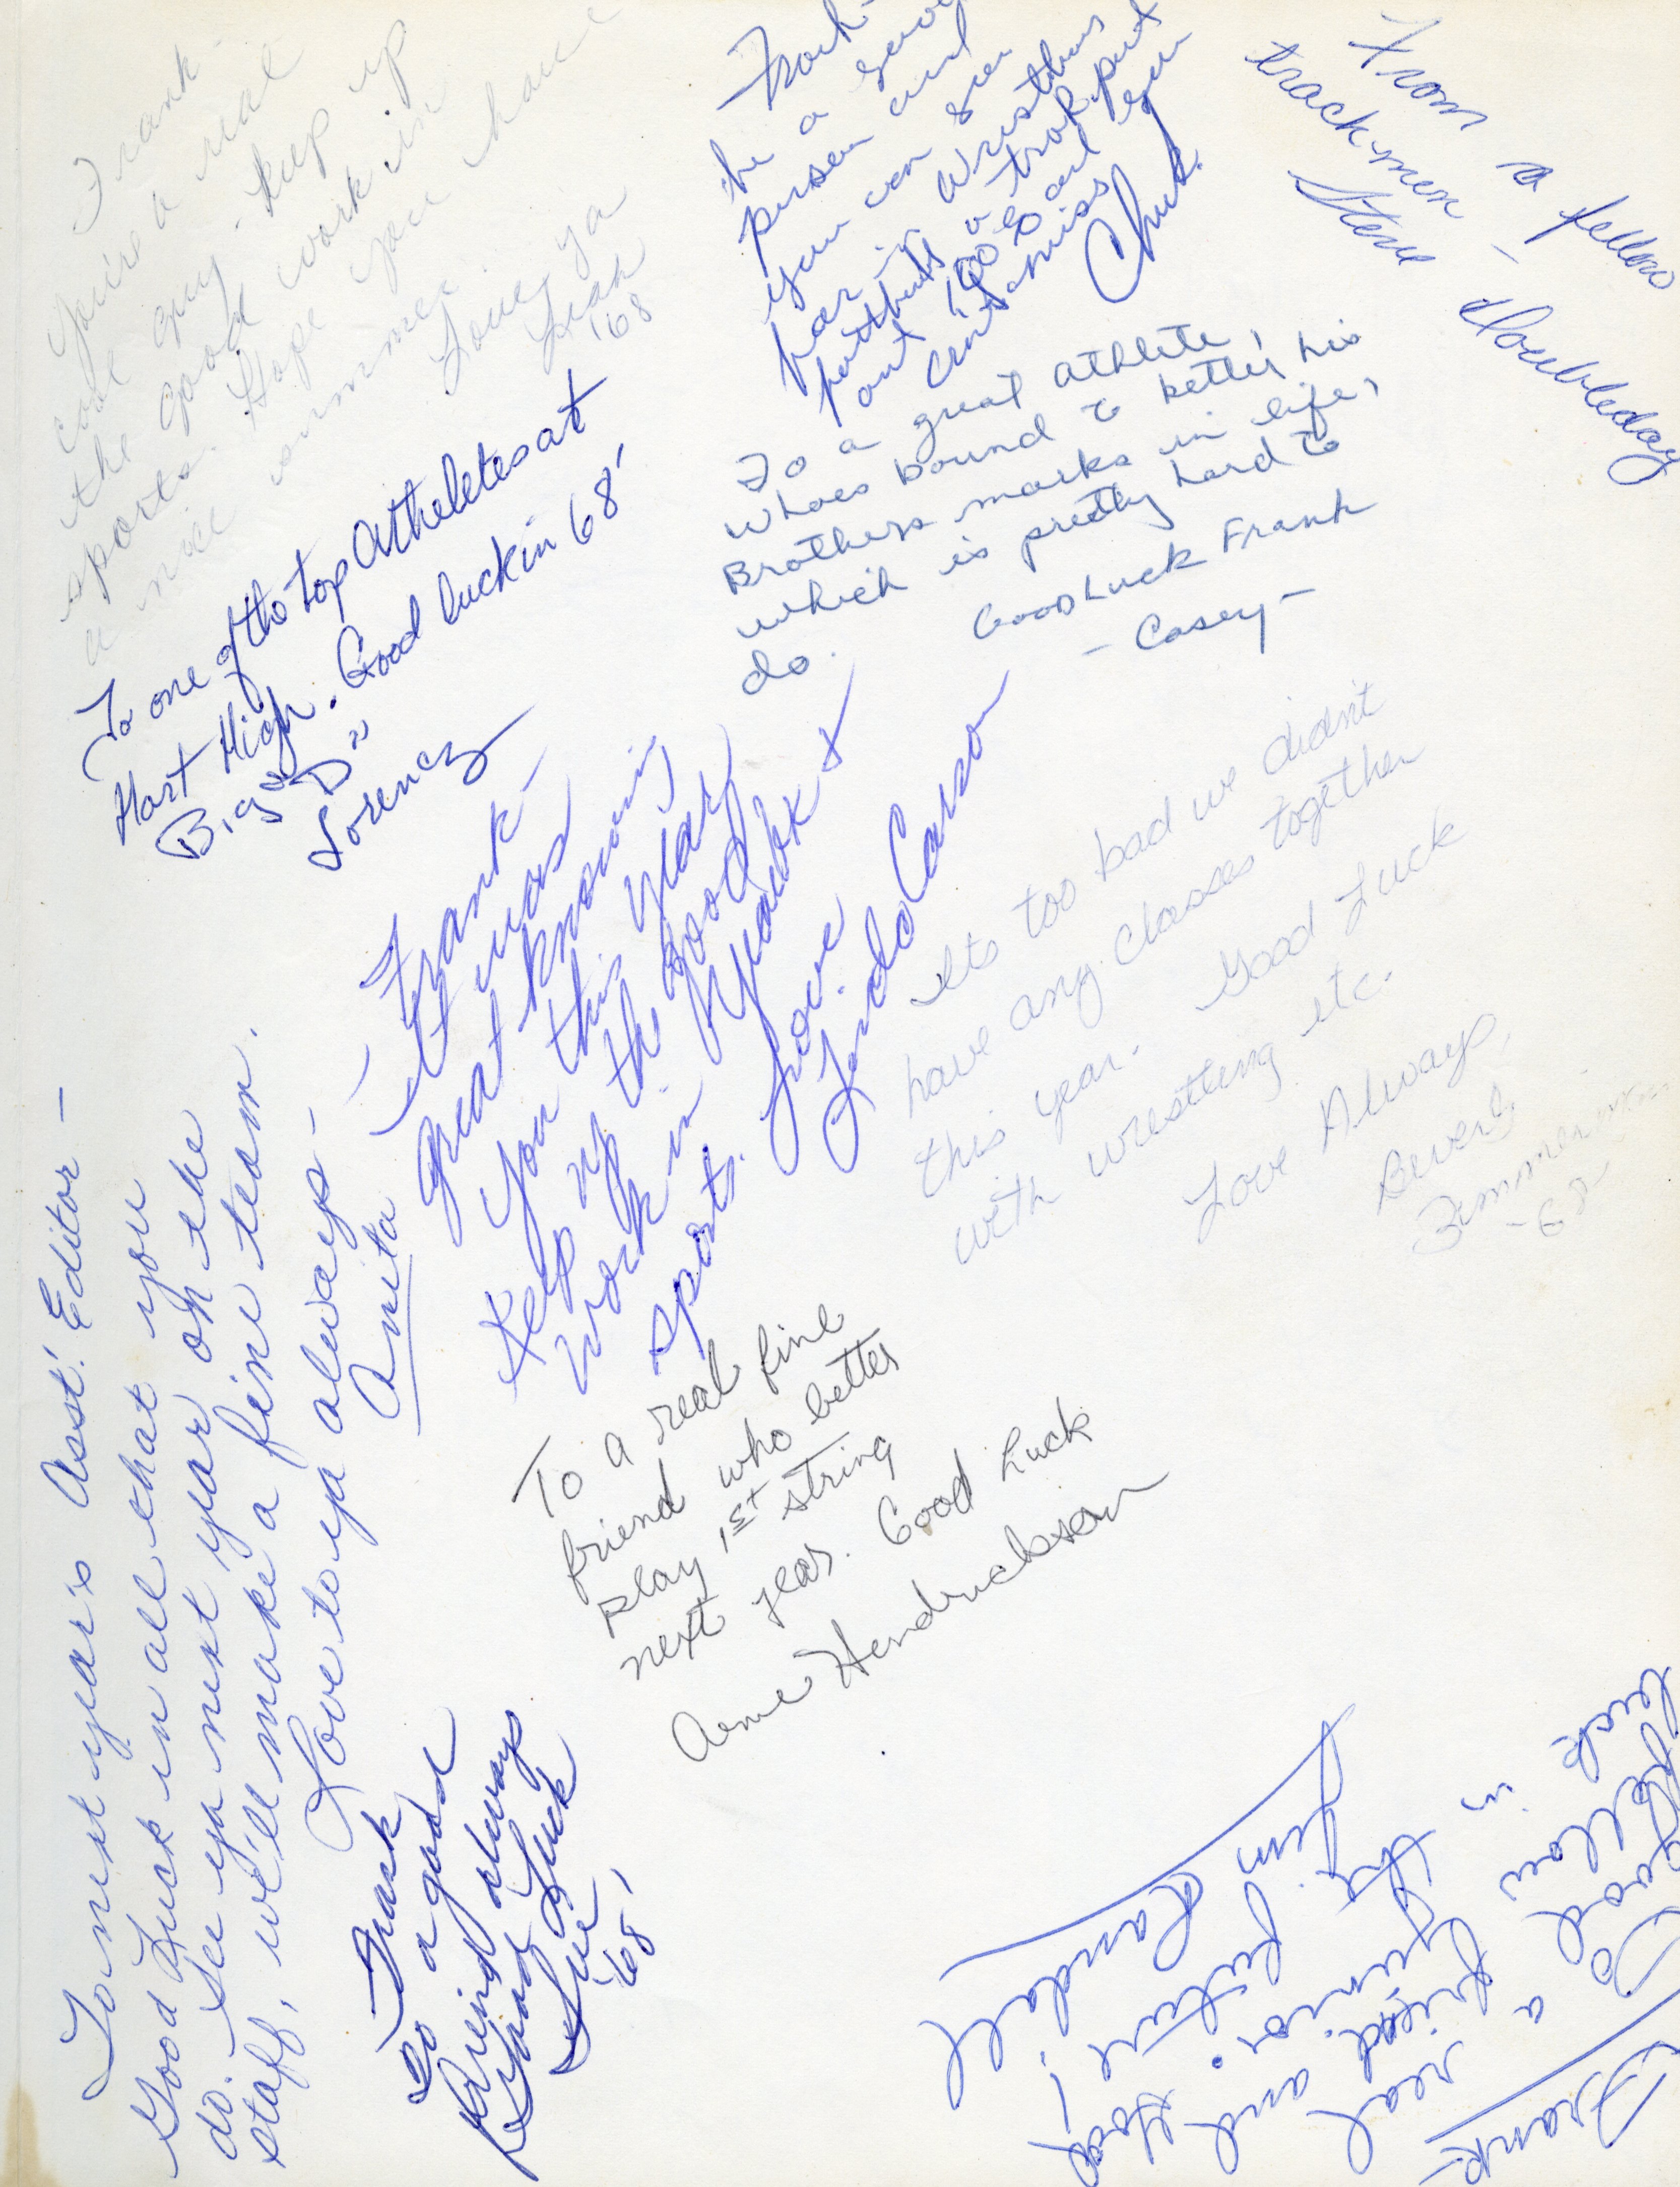 Frank -
You're a real
cool guy - keep up
the good work in
sports. Hope you have
a nice summer
Love ya
Leah
'68
Frank -
be a good
person and
you can
far in wrestling
put out
and
Chuck
From a fellow
track men -
Steve Doubleday
To a great athlete,
whoes bound to better his
Brothers marks in life,
which is pretty hard to
do.
Good Luck Frank
- Casey -
To one of the top Atheletes at
Hart High. Good luck in 68'
Big "D"
Lorenez
Frank -
It was
great knowing
you this year
Keep up the good
work in track &
sports.
Love
Linda Carson
Its too bad we didnt
have any classes together
this year. Good Luck
with wrestling etc.
Love Always,
Beverly
Zimmerman
-68-
To next year's Asst! Editor -
Good Luck in all that you
do. See ya next year on the
staff, we'll make a fine team.
Love to ya always -
Anita
To a real fine
friend who better
play 1st string
next year. Good Luck
Arne Hendrickson
To Frank
a good
friend always
Good Luck
Sue
'68'
Frank -
To a real
good friend and
fellow Junior. Good
luck in the future!
Jim Randall